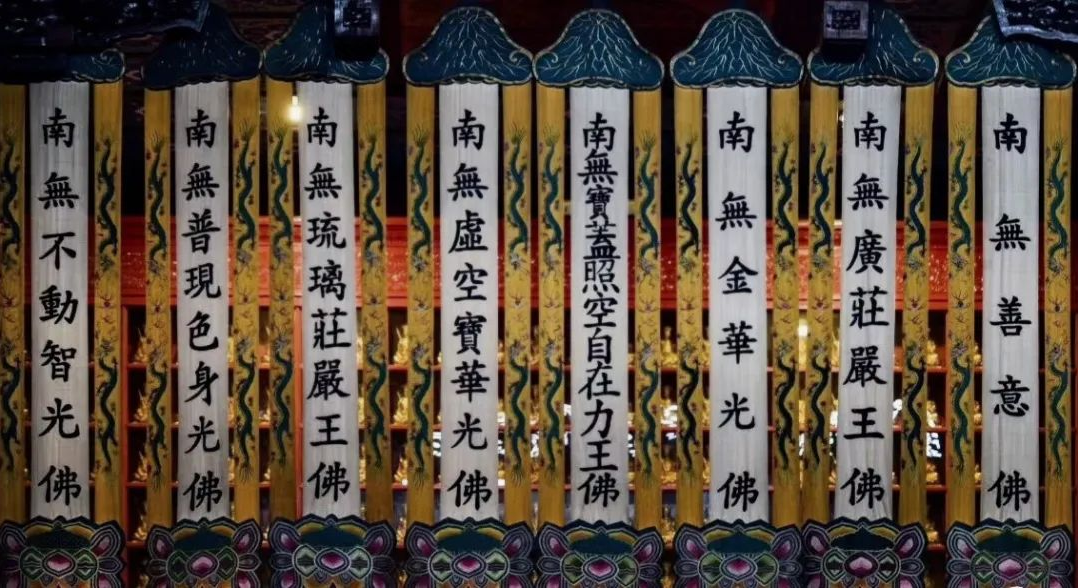 南無善意佛
南無廣莊嚴王佛
南無金華光佛
南無寶蓋照空自在力王佛
南無虛空寶華光佛
南無琉璃莊嚴王佛
南無普現色身光佛
南無不動智光佛